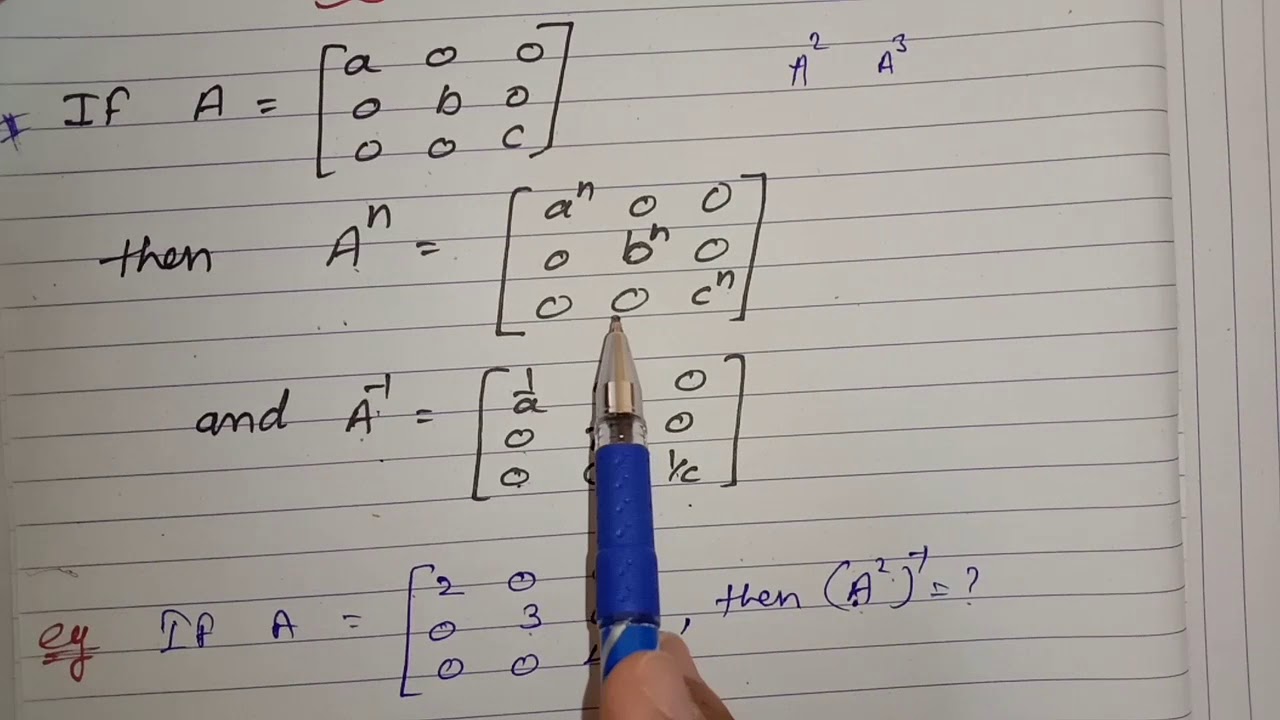 A² A³
If A = [a 0 0
0 b 0
0 0 c]
then Aⁿ = [aⁿ 0 0
0 bⁿ 0
0 0 cⁿ]
and A⁻¹ = [1/a 0
0 0
0 1/c]
eg If A = [2 0
0 3
0 0 , then (A²)⁻¹ = ?